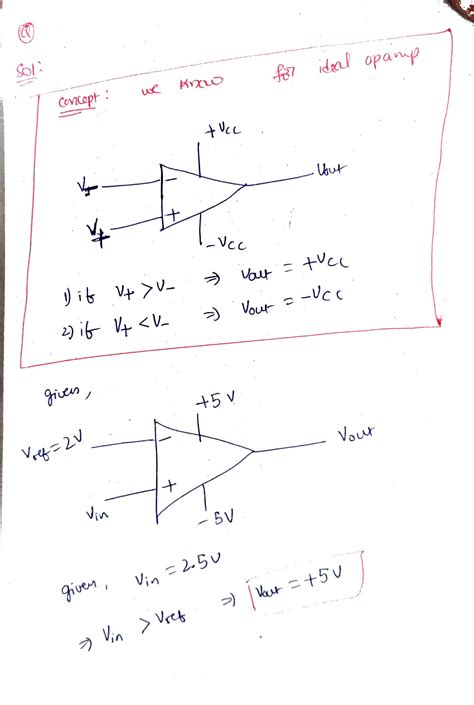 Sol:
concept: we know for ideal opamp
+Vcc
V-
−
Vout
V+
+
-Vcc
1) if V+ > V- ⇒ Vout = +Vcc
2) if V+ < V- ⇒ Vout = -Vcc
given,
+5V
Vref=2V
−
Vout
+
Vin
-5V
given, Vin = 2.5V
⇒ Vin > Vref ⇒ Vout = +5V